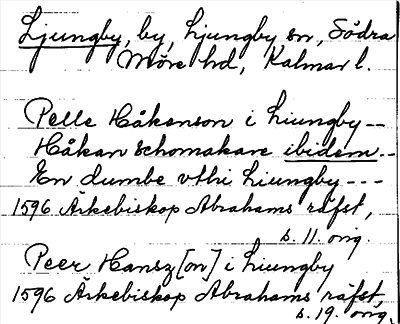 Ljungby, by, Ljungby sn, Södra
Möre hd, Kalmar l.
Pelle Håkanson i Liungby --
Håkan Schomakare ibidem --
En dumbe vthi Liungby ---
1596 Ärkebiskop Abrahams räfst,
s. 11. orig.
Peer Hansz[on] i Liungby
1596 Ärkebiskop Abrahams räfst,
s. 19. orig.